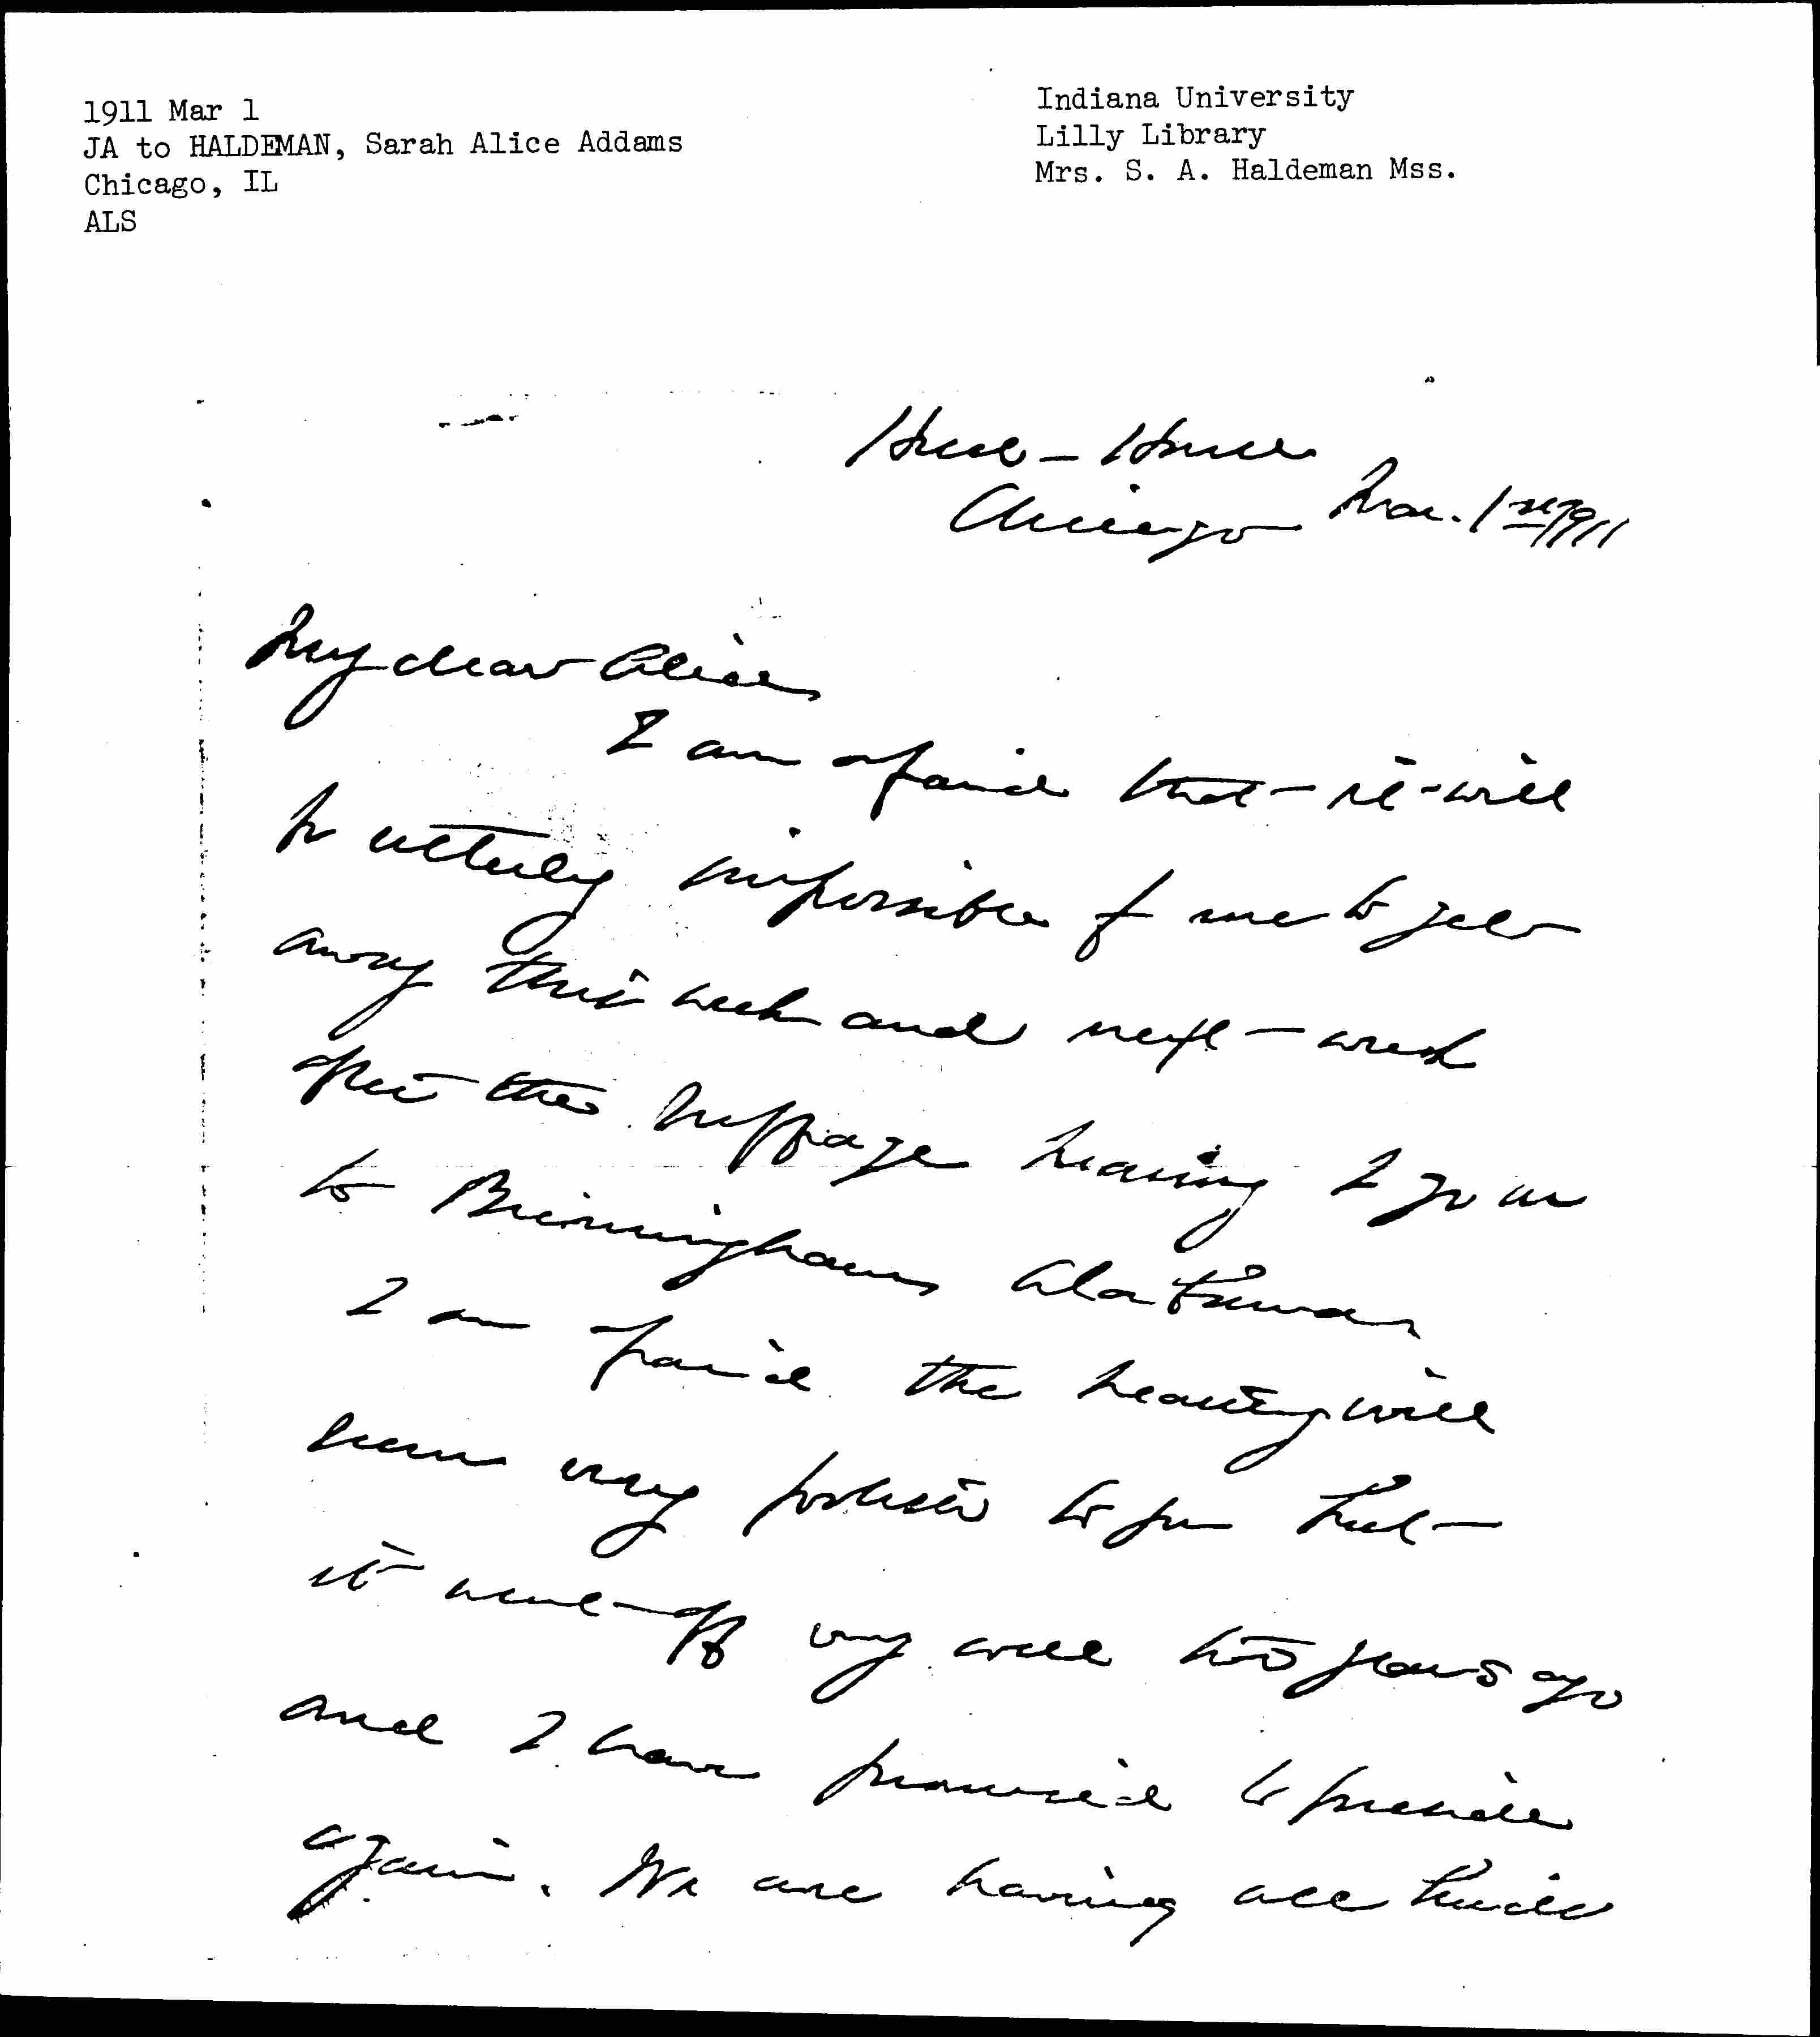 1911 Mar 1
JA to HALDEMAN, Sarah Alice Addams
Chicago, IL
ALS
Indiana University
Lilly Library
Mrs. S. A. Haldeman Mss.
Hull-House
Chicago Mar. 1st 1911
My dear Alice
I am afraid that it will
be utterly impossible f me to get
away this week and next week
after the suffrage hearing I go
to Birmingham Alabama,
I am afraid the hearing will
seem very to you but
it went off very well two years ago
and I have promised to preside
again. We are having all kinds